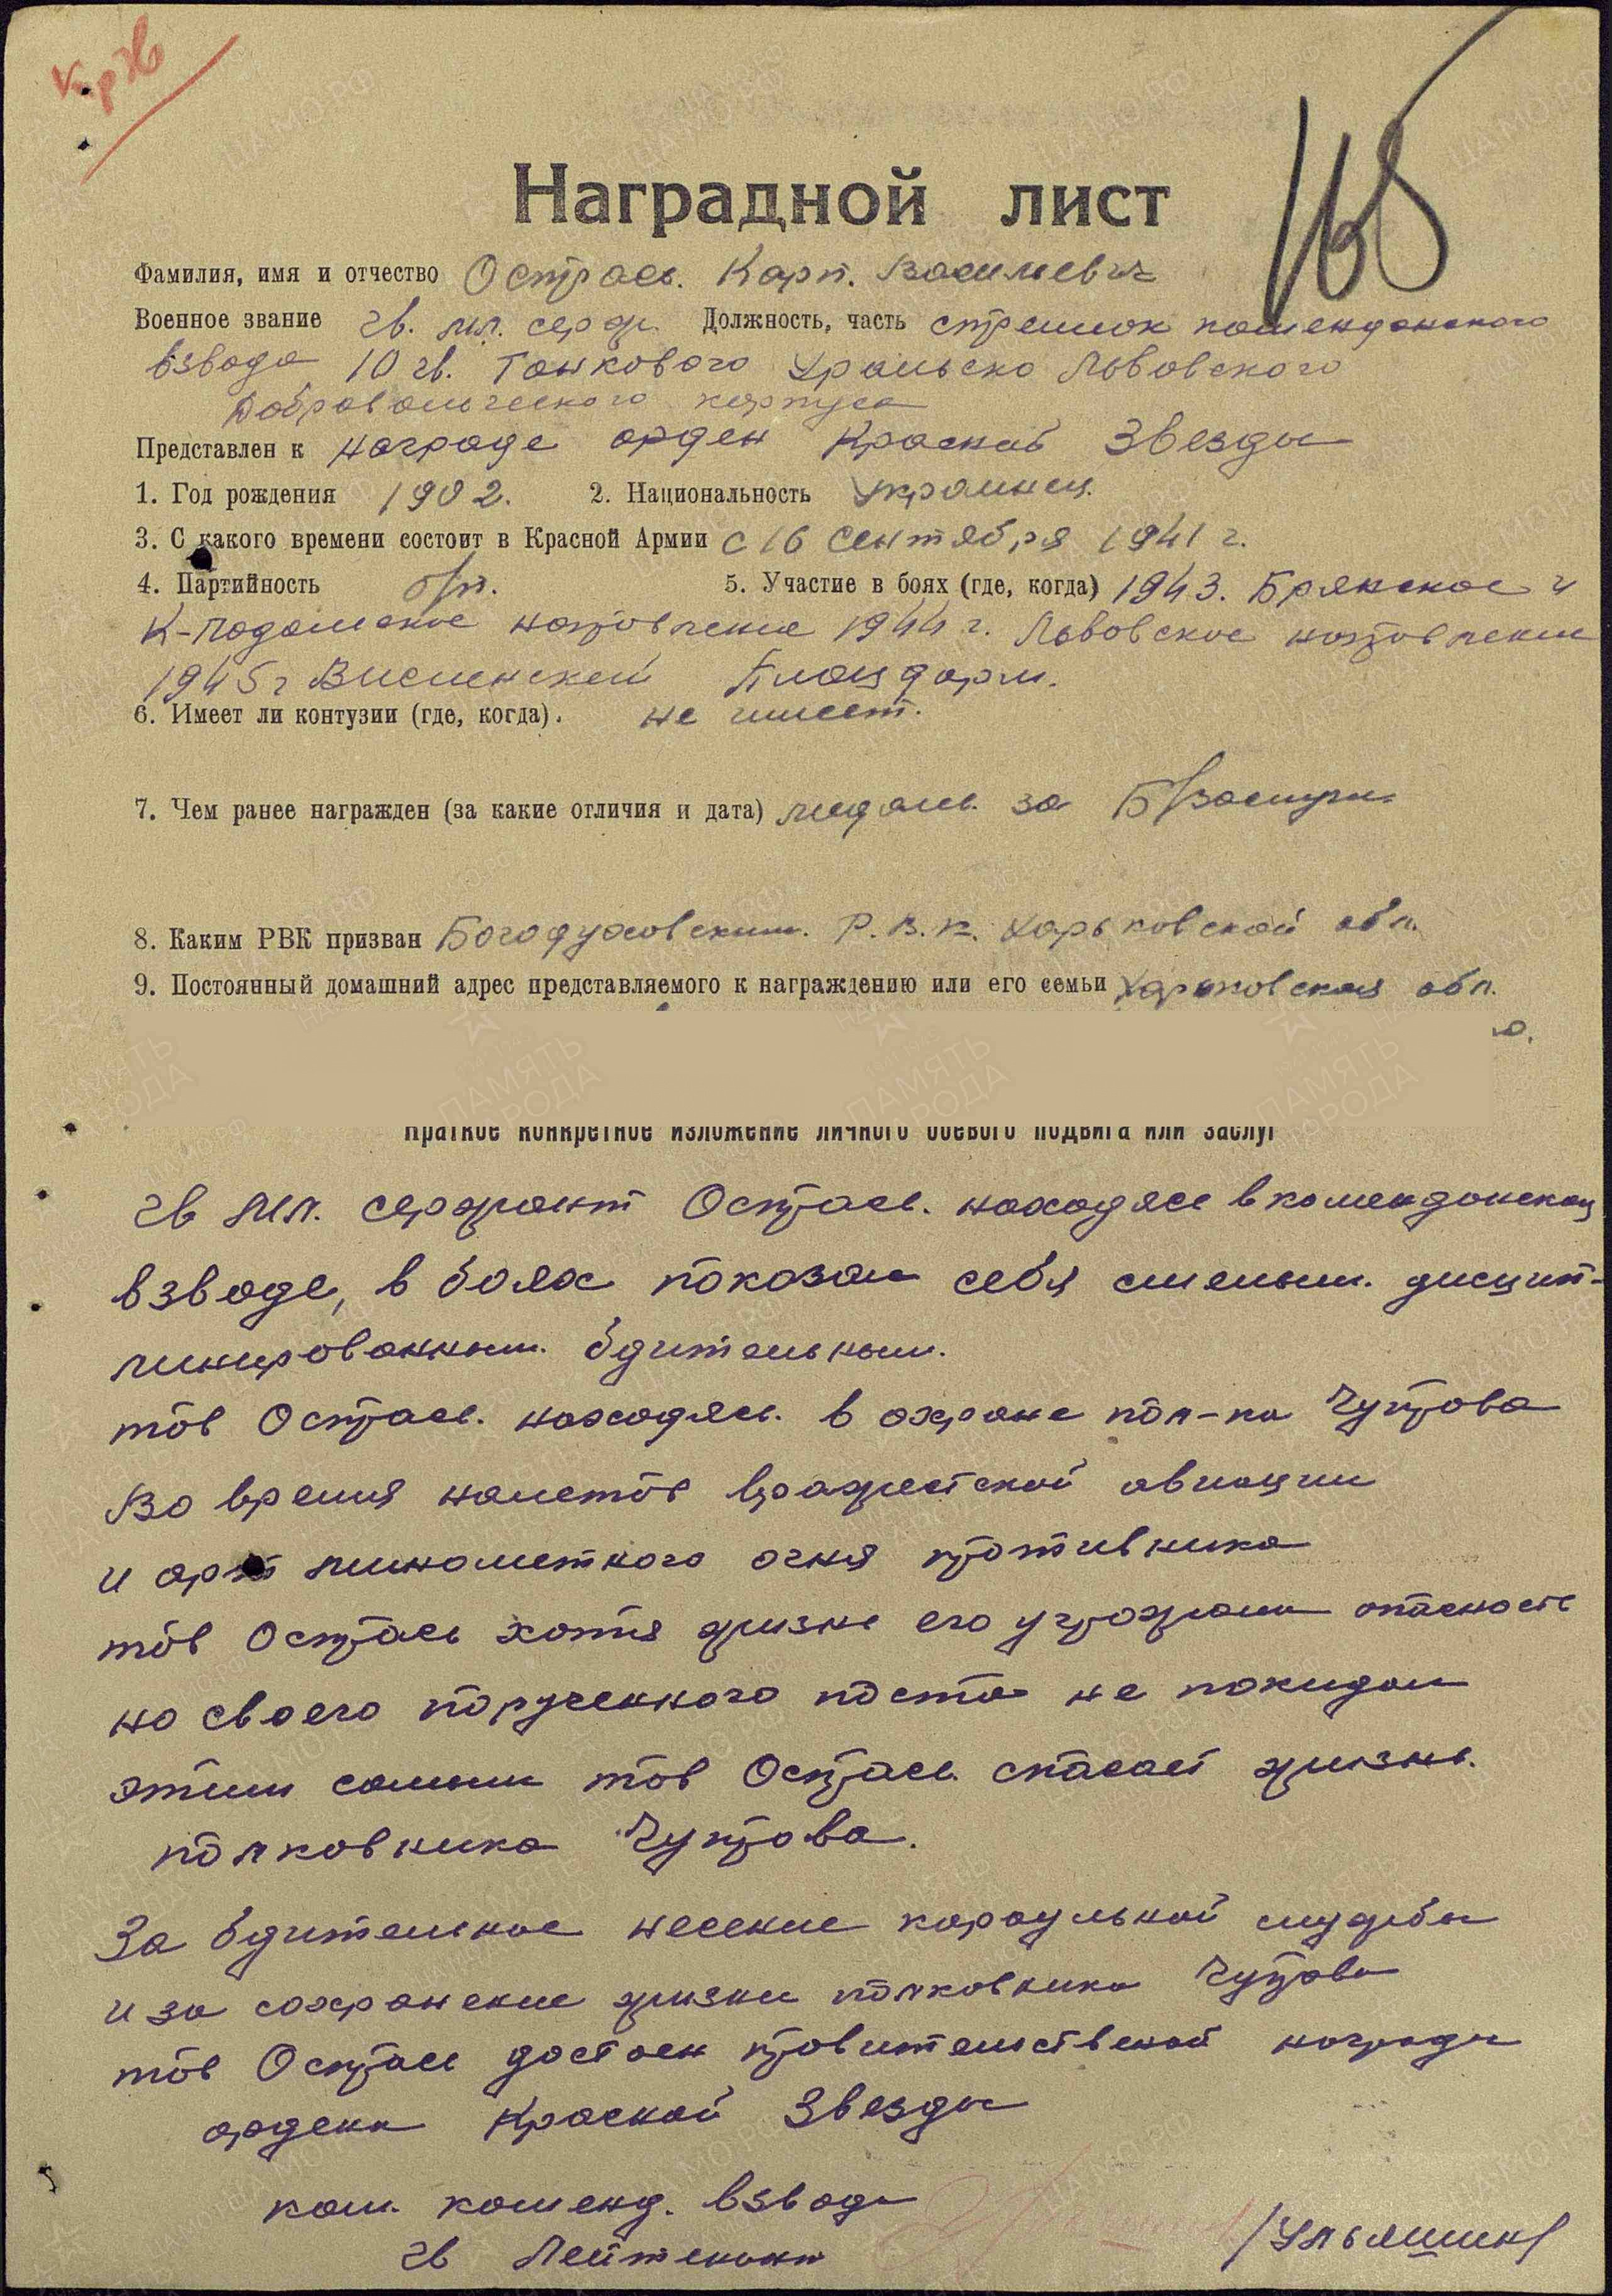 КрЗв
168
Наградной лист
Фамилия, имя и отчество Острась. Карп. Васильевич
Военное звание гв. мл. серж. Должность, часть стрелок комендонского
взвода 10 гв. Танкового Уральско Львовского
Добровольческого корпуса
Представлен к награде орден Красной Звезды
1. Год рождения 1902. 2. Национальность Украинец.
3. С какого времени состоит в Красной Армии с 16 Сентября 1941 г.
4. Партийность б/п. 5. Участие в боях (где, когда) 1943. Брянское и
К-Подольское направление 1944 г. Львовское направление
1945 г Висленский Плацдарм.
6. Имеет ли контузии (где, когда). не имеет.
7. Чем ранее награжден (за какие отличия и дата) медаль за Б/заслуги
8. Каким РВК призван Богодуховским. Р.В.К. Харьковской обл.
9. Постоянный домашний адрес представляемого к награждению или его семьи Харьковская обл.
Краткое конкретное изложение личного боевого подвига или заслуг
гв мл. сержант Острась. находясь в комендонском
взводе, в боях показал себя смелым. дисцип-
линированным. бдительным.
тов Острась. находясь. в охране пол-ка Чупрова
Во время налетов вражеской авиации
и арт минометного огня противника
тов Острась хотя жизне его угрожала опасность
но своего порученного поста не покидал
этим самым тов Острась спасает жизнь.
полковника Чупрова.
За бдительное несение караульной службы
и за сохранение жизни полковника Чупрова
тов Острась достоен правительственой награды
ордена Красной Звезды
ком. коменд. взвода
гв Лейтенант /Ульяшин/